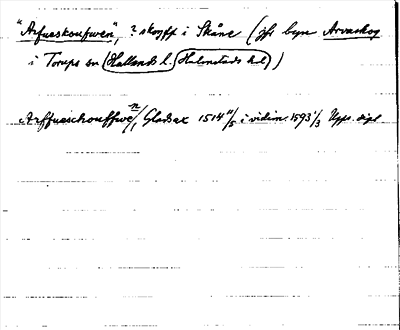 "Arfuaskoufwen", ? skogsp i Skåne (jfr byn Arvaskog
i Torups sn (Hallands l. Halmstads hd))
Arffuaschouffwen Gladsax 1514 11/5 i vidim. 1593 1/3 Upps. dipl